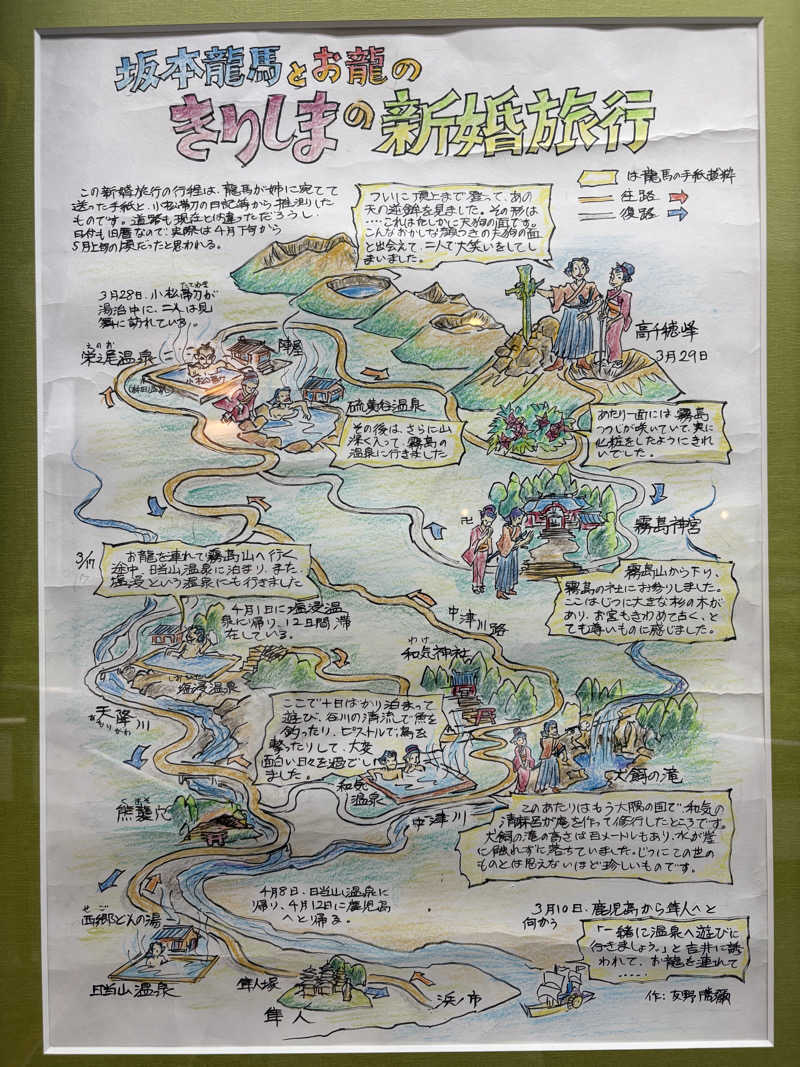 坂本龍馬とお龍の
きりしまの新婚旅行
は龍馬の手紙抜粋
往路
復路
この新婚旅行の行程は、龍馬が姉に宛てて
送った手紙と、小松帯刀の日記等から推測した
ものです。道路も現在とは違っただろうし、
日付も旧暦なので、実際は4月下旬から
5月上旬の頃だったと思われる。
ついに頂上まで登って、あの
天の逆鉾を見ました。その形は
....これはたしかに天狗の面です。
こんなおかしな顔つきの天狗の面
と出会えて、二人で大笑いをしてし
まいました。
3月28日、小松帯刀が
たてわき
湯治中に、二人は見
舞に訪れている。
えのお
栄之尾温泉
陣屋
小松帯刀
硫黄谷温泉
高千穂峰
3月29日
その後は、さらに山
深く入って、霧島の
温泉に行きました
あたり一面には、霧島
つつじが咲いていて、実に
化粧をしたようにきれ
いでした。
卍
霧島神宮
3/17
お龍を連れて霧島山へ行く
途中、日当山温泉に泊まり、また、
塩浸という温泉にも行きました
霧島山から下り、
霧島の社にお参りしました。
ここはじつに大きな杉の木が
あり、お宮もきわめて古く、と
ても尊いものに感じました。
4月1日に塩浸温
泉に帰り、12日間滞
在している。
中津川路
わけ
和気神社
しおひたし
塩浸温泉
天降川
あもりがわ
ここで十日ばかり泊まって
遊び、谷川の清流で魚を
釣ったり、ピストルで鳥を
撃ったりして、大変
面白い日々を過でし
ました。
和気
温泉
犬飼の滝
くまそ
熊襲穴
中津川
このあたりはもう大隅の国で、和気の
清麻呂が庵を作って修行したところです。
犬飼の滝の高さは百メートルもあり、水が崖
に触れずに落ちていました。じつにこの世の
ものとは思えないほど珍しいものです。
せご
西郷どんの湯
4月8日、日当山温泉に
帰り、4月12日に鹿児島
へと帰る。
3月10日、鹿児島から隼人へと
向かう
「一緒に温泉へ遊びに
行きましょう。」と吉井に誘
われて、お龍を連れて
......
日当山温泉
隼人塚
隼人
浜ノ市
作:友野